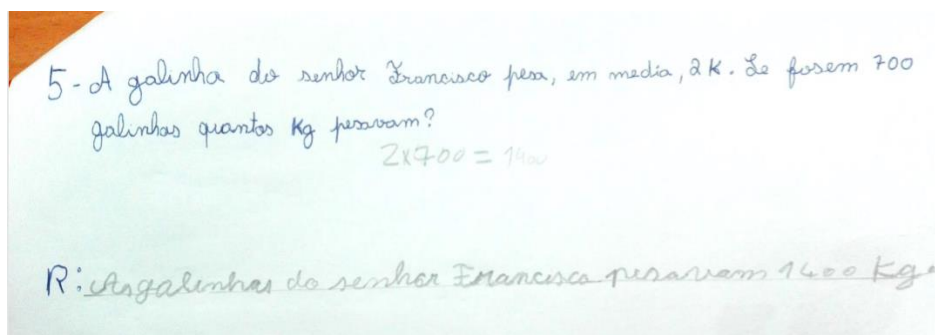 5 - A galinha do senhor Francisco pesa, em media, 2 K. Se fosem 700
galinhas quantos Kg pesavam?
2x700 = 1400
R: As galinhas do senhor Francisco pesavam 1400 Kg.